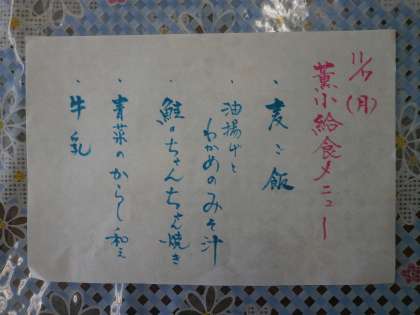 11/7(月)
薫小給食メニュー
・麦ご飯
・油揚げと
わかめのみそ汁
・鮭のちゃんちゃん焼き
・青菜のからし和え
・牛乳